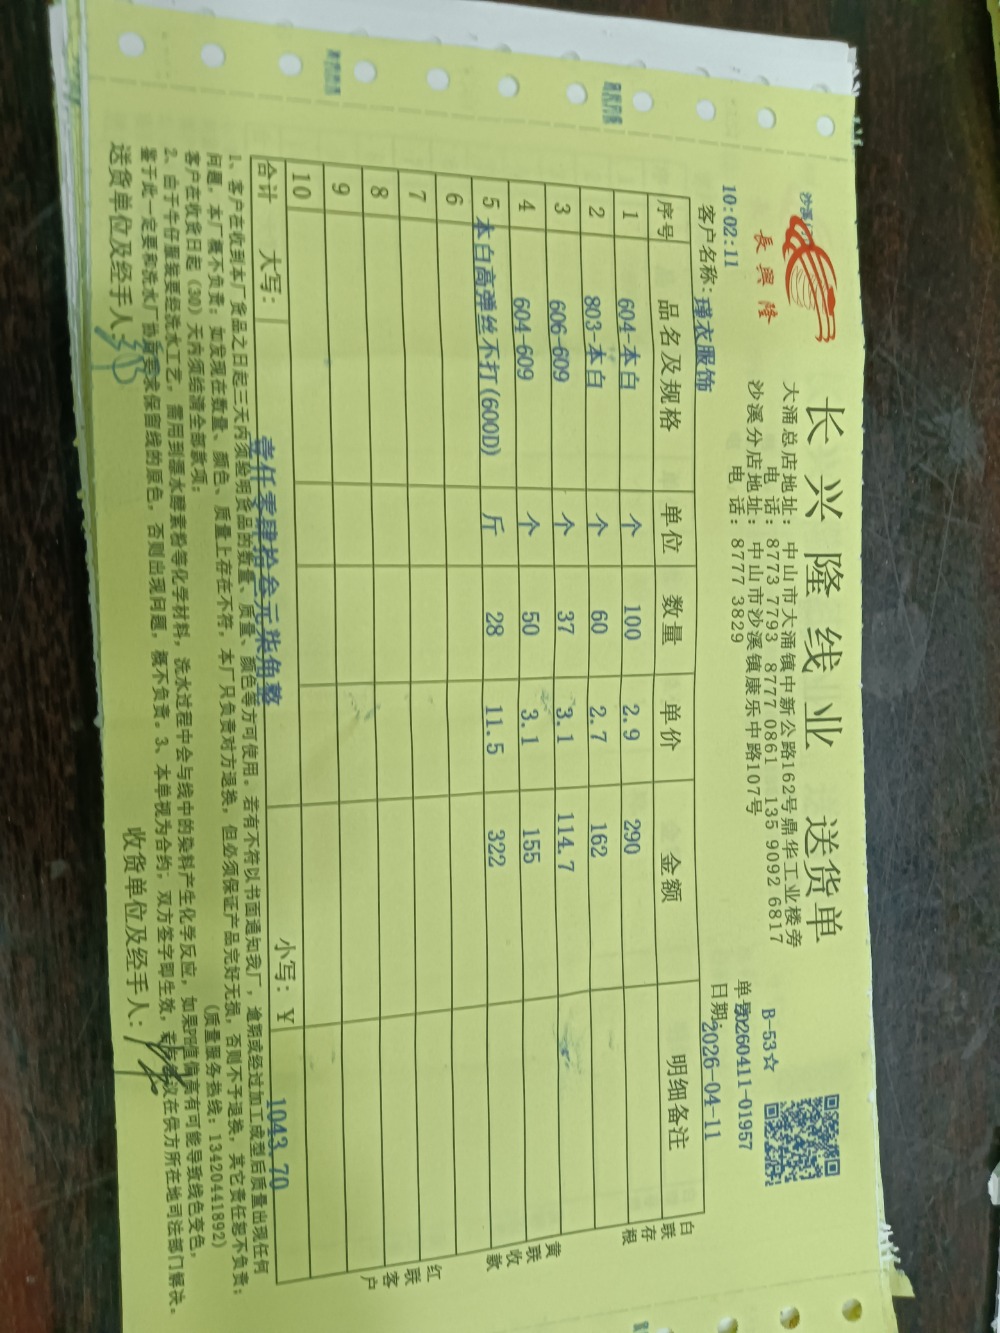 長興隆
长兴隆线业 送货单
大涌总店地址: 中山市大涌镇中新公路162号鼎华工业楼旁
电 话: 8773 7793 8777 0861 135 9092 6817
沙溪分店地址: 中山市沙溪镇康乐中路107号
电 话: 8777 3829
B-53☆
单号:20260411-01957
日期:2026-04-11
10:02:11
客户名称:瑾衣服饰
序号 品名及规格 单位 数量 单价 金额 明细备注
1 604-本白 个 100 2.9 290
2 803-本白 个 60 2.7 162
3 606-609 个 37 3.1 114.7
4 604-609 个 50 3.1 155
5 本白高弹丝不打(600D) 斤 28 11.5 322
6
7
8
9
10
合计 大写: 壹仟零肆拾叁元柒角整 小写: ¥ 1043.70
白联存根
黄联收款
红联客户
1、客户在收到本厂货品之日起三天内须验明货品的数量、质量、颜色等方可使用。若有不符以书面通知我厂,逾期或经过加工成型后质量出现任何
问题,本厂概不负责;如发现在数量、颜色、质量上存在不符,本厂只负责对方退换,但必须保证产品完好无损,否则不予退换,其它责任恕不负责;
客户在收货日起(30)天内须给清全部款项; (质量服务热线:13420441892)
2、由于牛仔服装要经洗水工艺,需用到漂水酵素粉等化学材料,洗水过程中会与线中的染料产生化学反应,如果PH值偏高有可能导致线色变色,
鉴于此一定要和洗水厂协商要求保留线的原色,否则出现问题,概不负责。3、本单视为合约,双方签字即生效,若有争议在供方所在地司法部门解决。
送货单位及经手人: 收货单位及经手人: